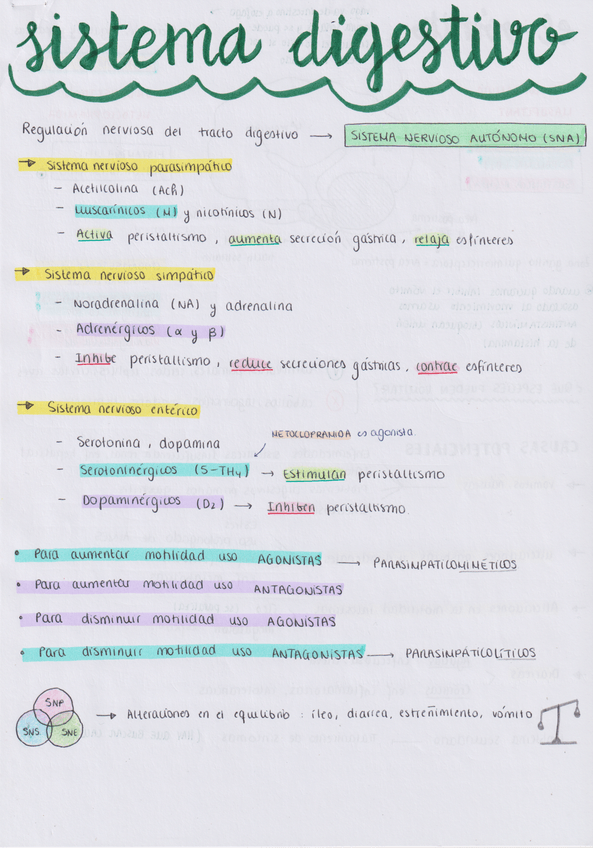 sistema digestivo
Regulación nerviosa del tracto digestivo → SISTEMA NERVIOSO AUTÓNOMO (SNA)
→ Sistema nervioso parasimpático
- Acetilcolina (Ach)
- Muscarínicos (M) y nicotínicos (N)
- Activa peristaltismo, aumenta secreción gástrica, relaja esfínteres
→ Sistema nervioso simpático
- Noradrenalina (NA) y adrenalina
- Adrenérgicos (α y β)
- Inhibe peristaltismo, reduce secreciones gástricas, contrae esfínteres
→ Sistema nervioso entérico
- Serotonina, dopamina
METOCLOPRAMIDA es agonista
- Serotoninérgicos (5-TH4) → Estimulan peristaltismo
- Dopaminérgicos (D2) → Inhiben peristaltismo.
• Para aumentar motilidad uso AGONISTAS → PARASIMPATICOMIMÉTICOS
• Para aumentar motilidad uso ANTAGONISTAS
• Para disminuir motilidad uso AGONISTAS
• Para disminuir motilidad uso ANTAGONISTAS → PARASIMPÁTICOLÍTICOS
SNP
SNS SNE
→ Alteraciones en el equilibrio: íleo, diarrea, estreñimiento, vómito